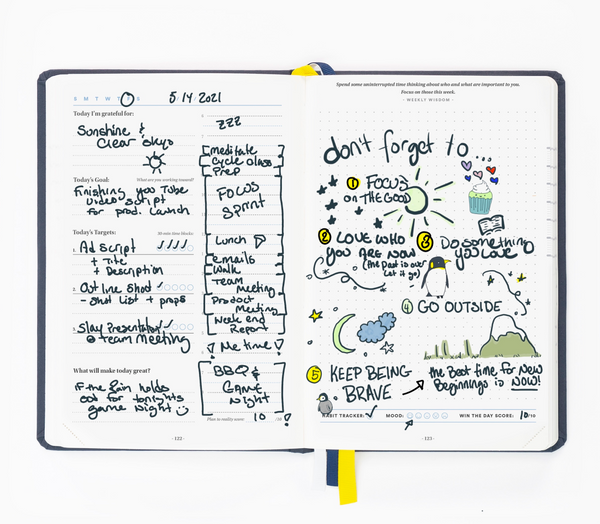 S M T W T F S
5/14/2021
Today I'm grateful for:
Sunshine &
Clear skys
Today's Goal:
What are you working toward?
Finishing you Tube
video script
for prod. launch
Today's Targets:
30 min time blocks:
1. Ad script
+ Title
+ Description
2. Outline Shod
- Shot List + props
3. Slay Presentation
@ team Meeting
What will make today great?
if the Rain holds
out for tonights
game night
zzz
meditate
Cycle class
Prep
FOCUS
Sprint
Lunch
emails
walk
Team
Meeting
Product
Meeting
Week end
Report
Me time
BBQ &
Game
night
Plan to reality score:
10 /10
- 122 -
Spend some uninterrupted time thinking about who and what are important to you.
Focus on those this week.
- WEEKLY WISDOM -
don't forget to...
1 FOCUS
on THE GOOD
2 LOVE WHO
you ARE NOW
(the past is over
let it go)
3 Do something
you love
4 GO OUTSIDE
5 KEEP BEING
BRAVE
the Best time for New
Beginnings is NOW!
HABIT TRACKER:
MOOD:
WIN THE DAY SCORE: 10/10
- 123 -